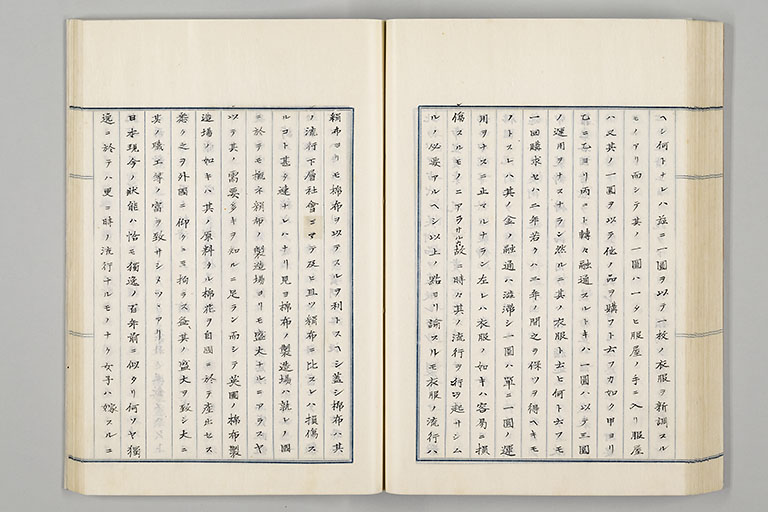 ヘシ何トナレハ茲ニ一圓ヲ以テ一枚ノ衣服ヲ新調スル
モノアリ而シテ其ノ一圓ハ一タヒ服屋ノ手ニ入リ服屋
ハ又其ノ一圓ヲ以テ他ノ品ヲ購フト云フカ如ク甲ヨリ
乙ニ乙ヨリ丙ニト轉々融通スルトキハ一圓ハ以テ三圓
ノ運用ヲナスナラン然ルニ其ノ衣服ト云ヒ何ト云フモ
一回購求セハ二年若クハ三年ノ間之ヲ保ツヲ得ヘキモ
ノトスレハ其ノ金ノ融通ハ澁滞シ一圓ハ單ニ一圓ノ運
用ヲナスニ止マルナラン左レハ衣服ノ如キハ容易ニ損
傷スルモノニアラサル故ニ時々其ノ流行ヲ行ヲ起サシム
ルノ必要アルヘシ以上ノ點ヨリ論スルモ衣服ノ流行ハ
絹布ヨリモ棉布ヲ以テスルヲ利トスヘシ蓋シ棉布ハ其
ノ流行下層社會ニマテ及ヒ且ツ絹布ニ比スレハ損傷ス
ルコト甚タ速ナレハナリ見ヨ棉布ノ製造場ハ孰レノ國
ニ於テモ概ネ絹布ノ製造場ヨリモ盛大ナルニアラスヤ
以テ其ノ需要多キヲ知ルニ足ラン而シテ英國ノ棉布製
造場ノ如キハ其ノ原料タル棉花ヲ自國ニ於テ産出セス
悉ク之ヲ外國ニ仰クニモ拘ラス益其ノ盛大ヲ致シ大ニ
其ノ職工等ノ富ヲ致サシメツヽアリ
日本現今ノ状態ハ恰モ獨逸ノ百年前ニ似タリ何ソヤ獨
逸ニ於テハ更ニ時ノ流行ナルモノナク女子ハ嫁スルニ